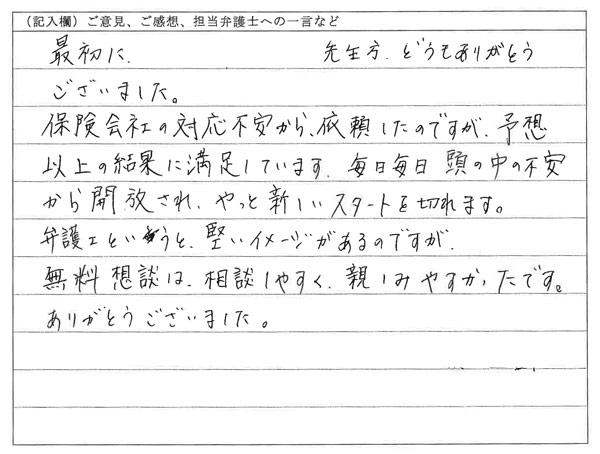 （記入欄）ご意見、ご感想、担当弁護士への一言など
最初に、 先生方、どうもありがとう
ございました。
保険会社の対応不安から、依頼したのですが、予想
以上の結果に満足しています。毎日毎日 頭の中の不安
から開放され、やっと新しいスタートを切れます。
弁護士というと、堅いイメージがあるのですが、
無料想談は、相談しやすく、親しみやすかったです。
ありがとうございました。